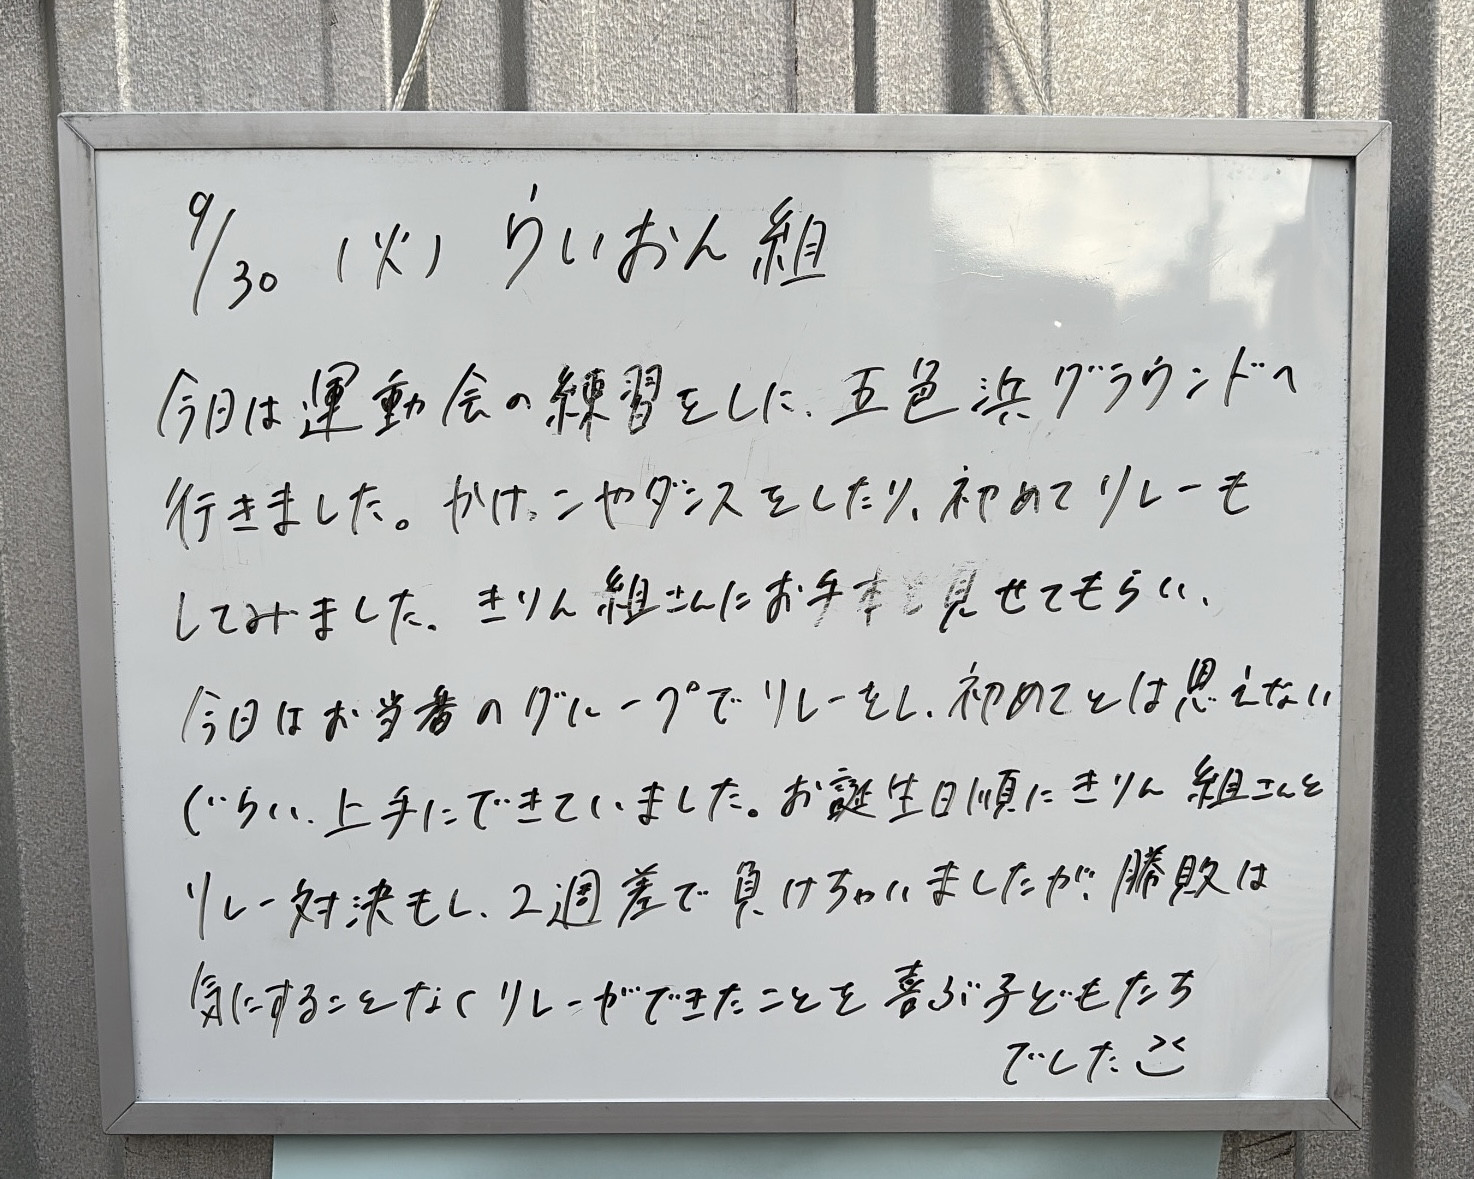 9/30 (火) らいおん組
今日は運動会の練習をした、五色浜グラウンドへ
行きました。かけっこやダンスをしたり、初めてリレーも
してみました。きりん組さんにお手本を見せてもらい、
今日はお当番のグループでリレーをし、初めてとは思えない
ぐらい、上手にできていました。お誕生日順にきりん組さんと
リレー対決もし、2週差で負けちゃいましたが、勝敗は
気にすることなくリレーができたことを喜ぶ子どもたち
でした